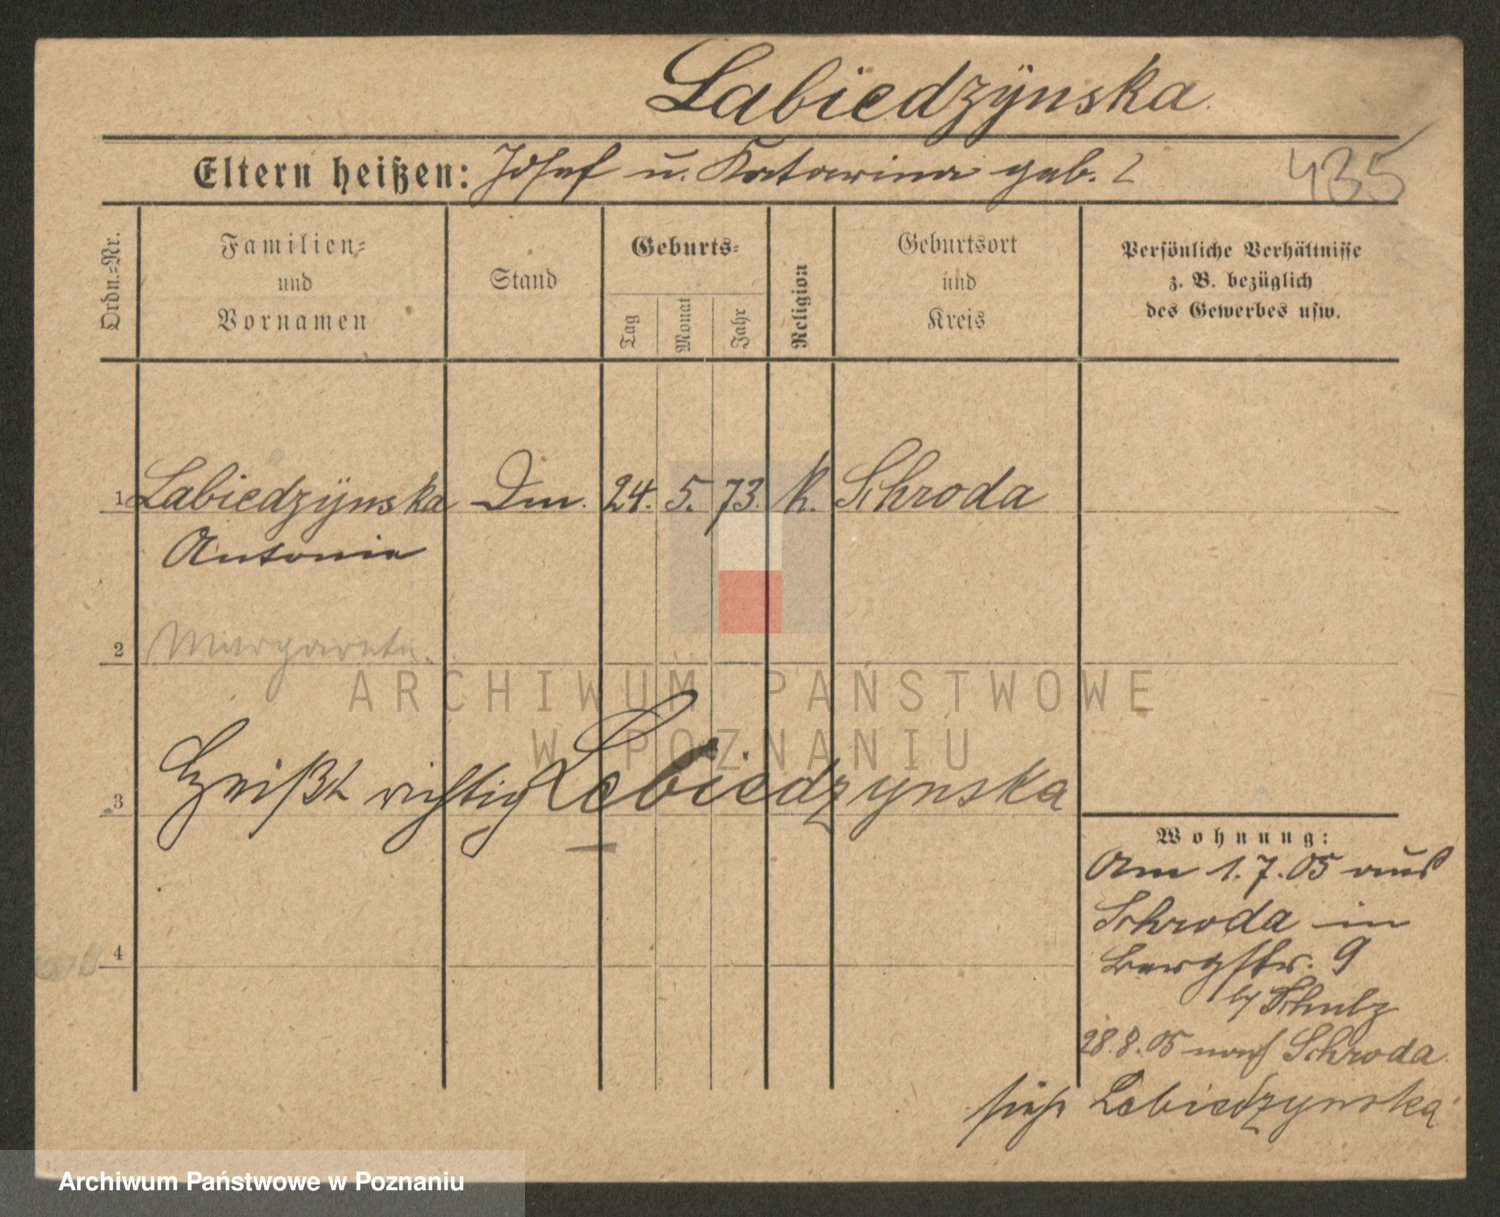 Labiedzÿnska
Eltern heißen: Josef u. Katarina geb. ?
435
Ordn.=Nr.
Familien=
und
Vornamen
Stand
Geburts=
Tag
Monat
Jahr
Religion
Geburtsort
und
Kreis
Persönliche Verhältnisse
z. B. bezüglich
des Gewerbes usw.
1 Labiedzÿnska Dm. 24. 5. 73. k. Schroda
Antonie
2 Margareta.
ARCHIWUM PAŃSTWOWE
W POZNANIU
3 Heißt richtig Lebiedzynska
Wohnung:
Am 1.7.05 aus
Schroda in
Bergstr. 9
by Schulz
4
28.8.05 nach Schroda.
siehe Lebiedzynska
Archiwum Państwowe w Poznaniu